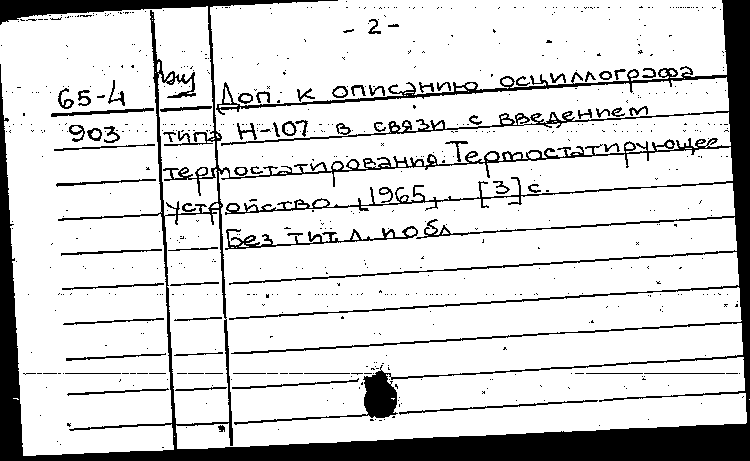 - 2 -
65-4 Доп. к описанию осциллографа
903 типа Н-107 в связи с введением
термостатирования. Термостатирующее
устройство. 1965. [3] с.
Без тит. л. и обл